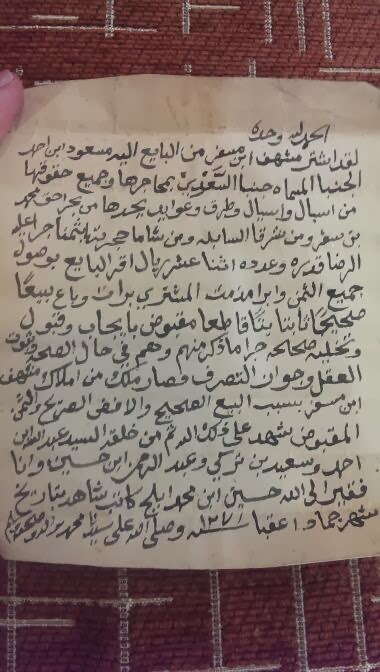 الحمد لله وحده
لقد اشترى مشهف ابن مسفر من البايع اليه مسعود ابن احمد
الجنبا المسماه جنبا السعدين بمحاجرها وجميع حقوقها
من اسبال واسبال وطرق وعوايد يحدها من بحر احق محمد
بن سفر ومن شرقا السابله ومن شاما حجرية بثمنا جرا عليه
الرضا قدره وعدده اثنا عشر ريال اقر البايع بوصول
جميع الثمن وابرا ذمت المشتري برات وباع بيعا
صحيحا ثابتا بتا قاطعا مقبوض بايجاب وقبول
وتخليه صحاحه جرا ماذكر منهم وهم في حال الصحة وثبوت
العقل وجوان التصرف فصار ملك من املاك مشهف
ابن مسفر بسبب البيع الصحيح والافض الصريح والثمن
المقبوض شهد على ذلك الله ثم من خلقه السيد عبد الله ابن
احمد وسعيد بن تركي وعبد الرحمن ابن حسين وانا
فقير الى الله حسين ابن محمد كاتب شاهد بتاريخ
شهر جماد اعقبا ١٢٧١ سنه وصلى الله على سيدنا محمد واله وصحبه